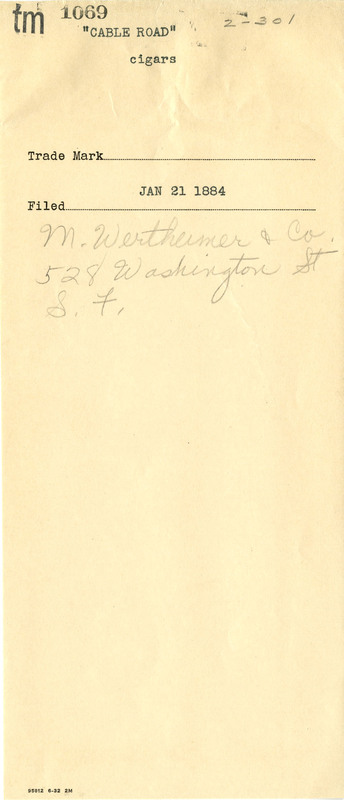 tm 1069
"CABLE ROAD"
2-301
cigars
Trade Mark
JAN 21 1884
Filed
M. Wertheimer & Co.
528 Washington St
S. F.
95812 6-32 2M